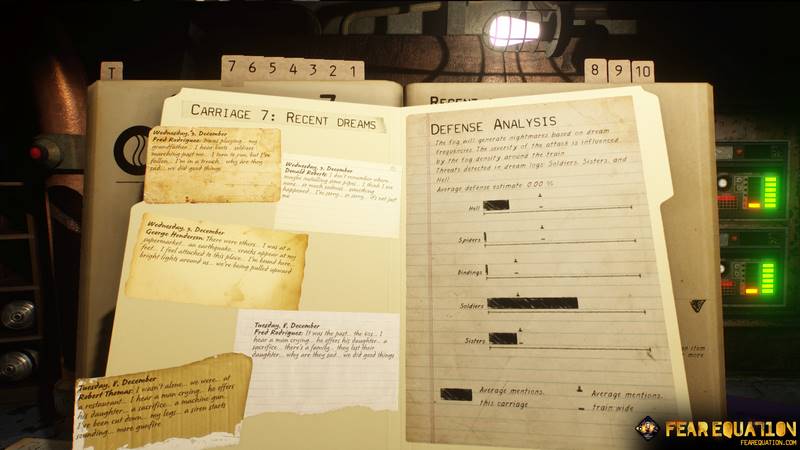 T
7 6 5 4 3 2 1
8 9 10
CARRIAGE 7: RECENT DREAMS
Wednesday, 9. December
Fred Rodriguez: Music playing... my
grandfather... I hear boots... soldiers
marching past me... I turn to run, but I've
fallen... I'm in a trench... why are they
sad... we did good things
Wednesday, 9. December
Donald Roberts: I don't remember where...
maybe installing some pipes... I think I was
alone... so much sadness... something
happened... I'm sorry... so sorry... it's not just
me
Wednesday, 9. December
George Henderson: There were others... I was at a
supermarket... an earthquake... cracks appear at my
feet... I feel attached to this place... I'm bound here...
bright lights around us... we're being pulled upward
Tuesday, 8. December
Fred Rodriguez: It was the past... the 60s... I
hear a man crying... he offers his daughter... a
sacrifice... there's a family... they lost their
daughter... why are they sad... we did good things
Tuesday, 8. December
Robert Thomas: I wasn't alone... we were... at
a restaurant... I hear a man crying... he offers
his daughter... a sacrifice... a machine gun...
I've been cut down... my legs... a siren starts
sounding... more gunfire
DEFENSE ANALYSIS
The fog will generate nightmares based on dream
frequencies. The severity of the attack is influenced
by the fog density around the train.
Threats detected in dream logs: Soldiers, Sisters, and
Hell.
Average defense estimate 0.00 %
Hell
Spiders
Bindings
Soldiers
Sisters
Average mentions,
this carriage
Average mentions,
train wide
item
more
FEAR EQUATION
FEAREQUATION.COM